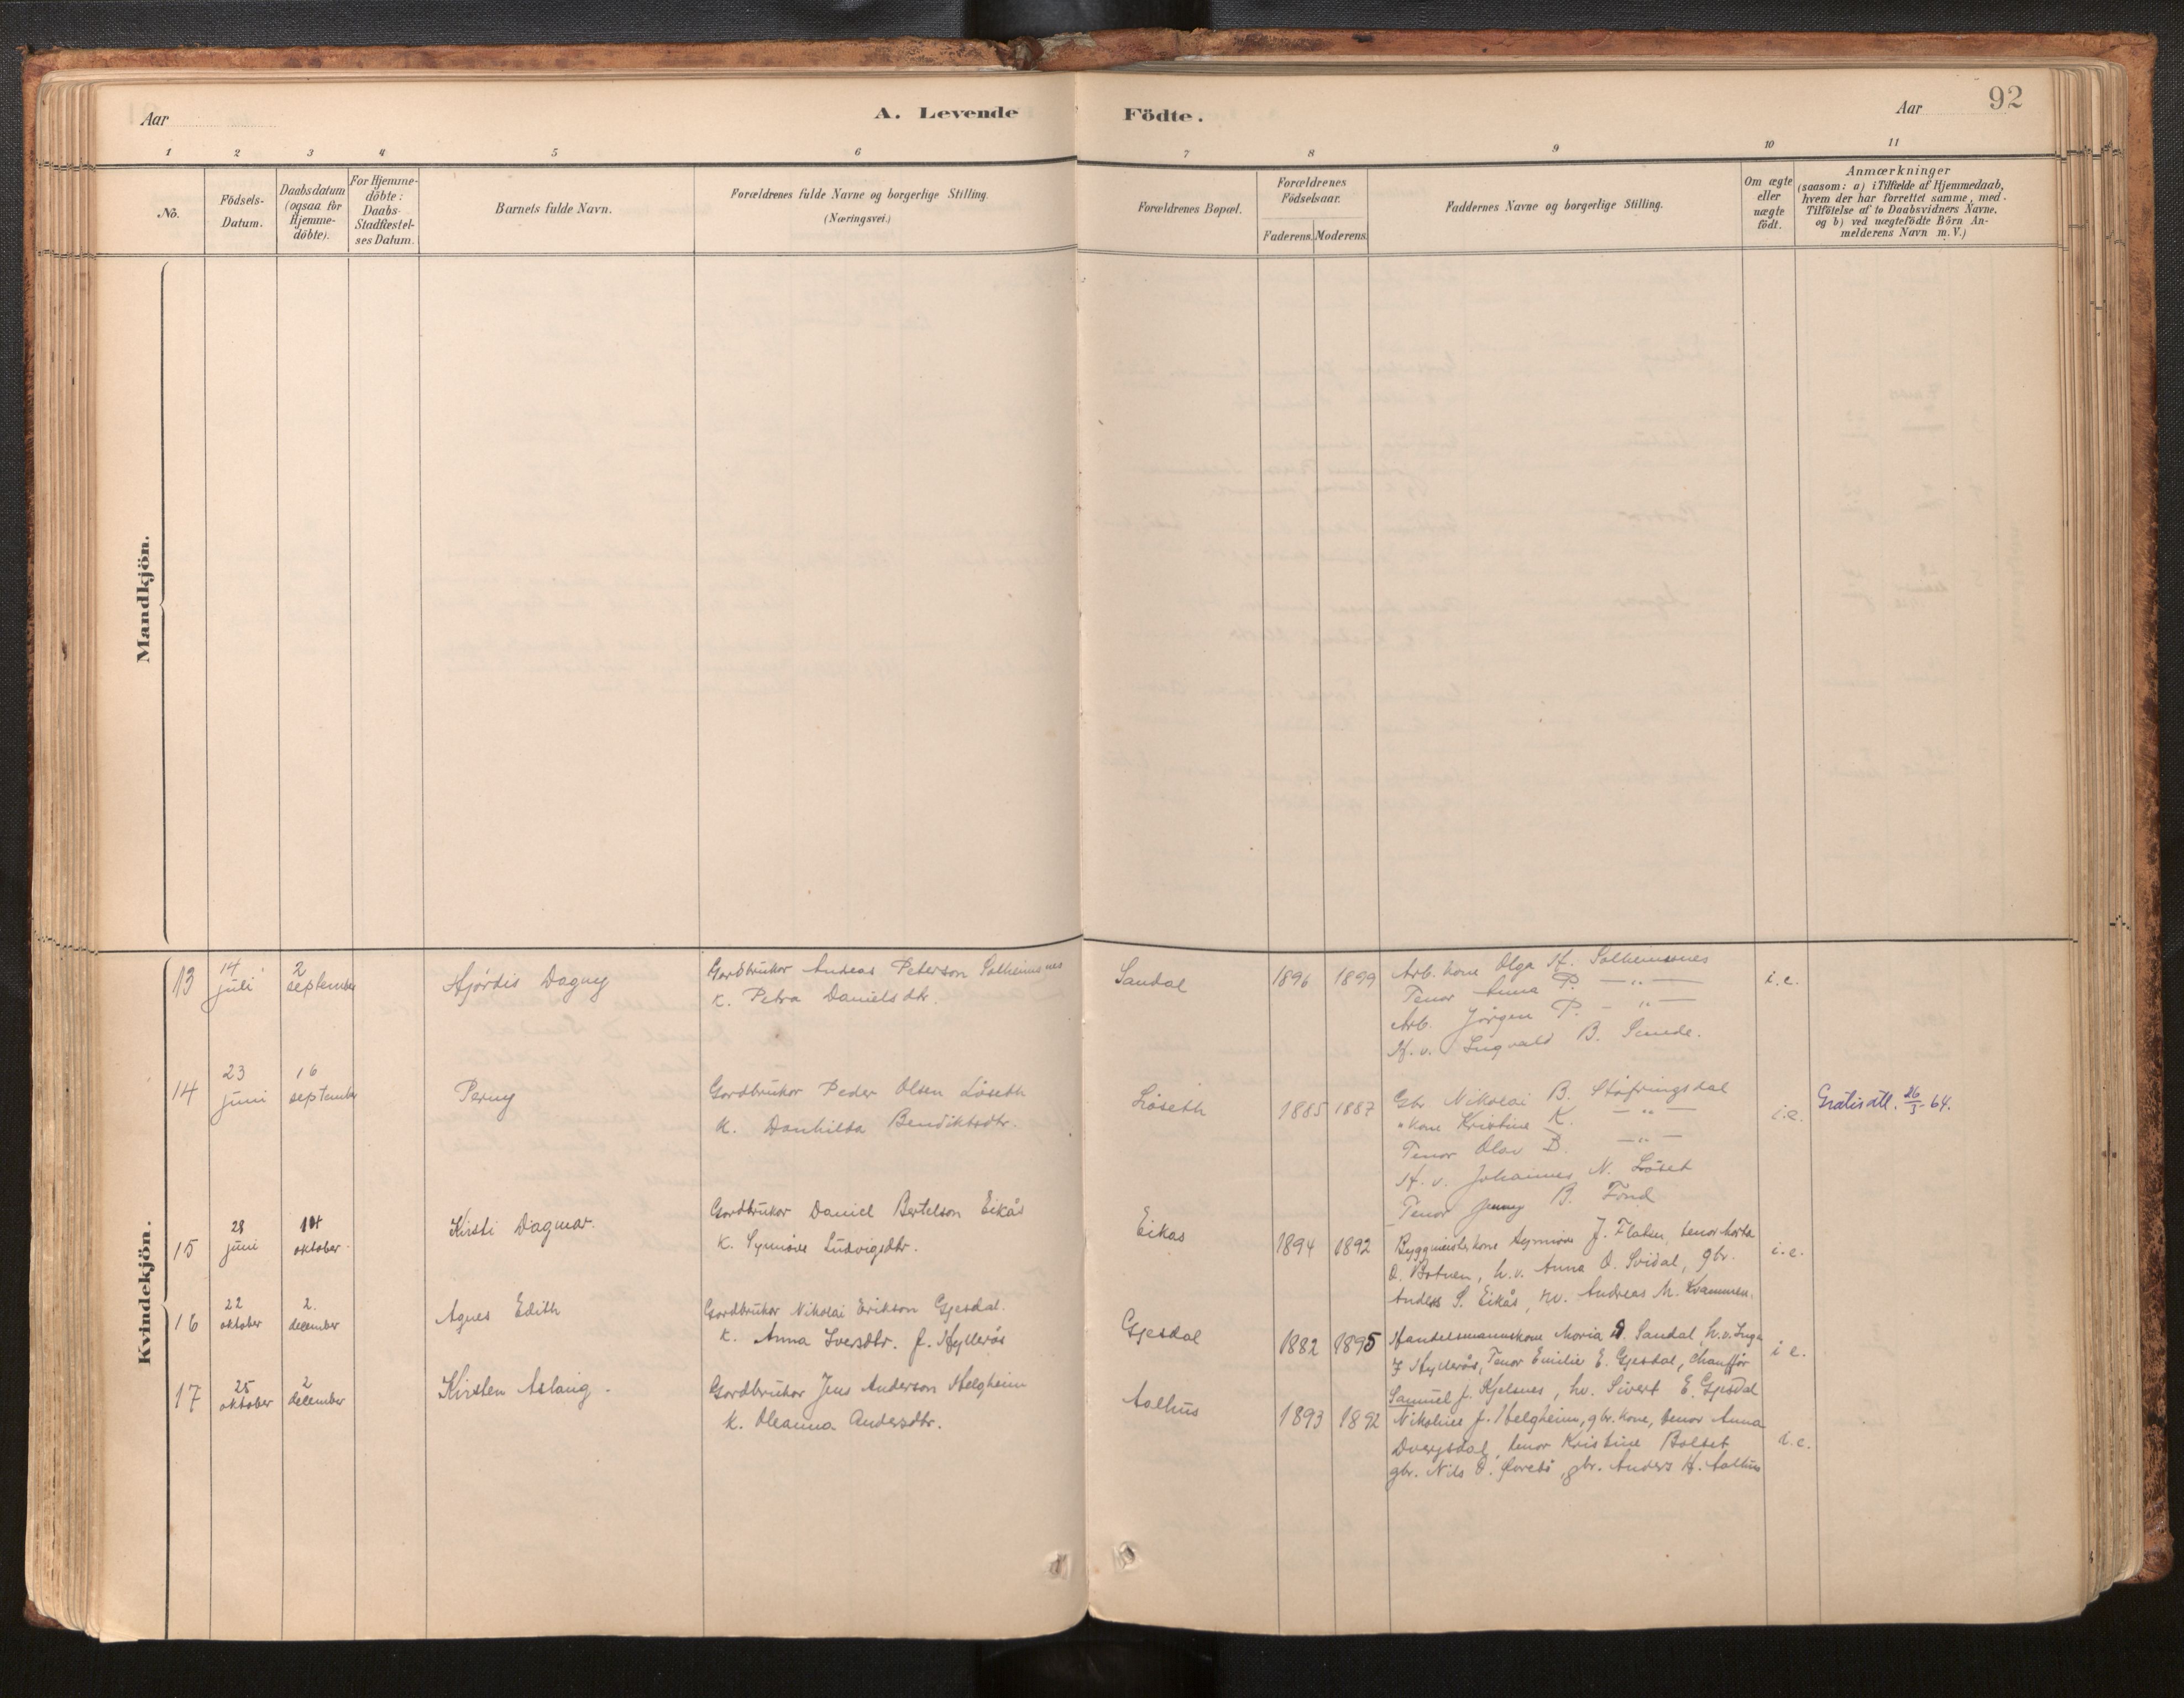 92
Aar
A. Levende Födte.
Aar
1 2 3 4 5 6 7 8 9 10 11
No.
Födsels-
Datum.
Daabsdatum
(ogsaa for
Hjemme-
döbte).
For Hjemme-
döbte:
Daabs-
Stadfæstel-
ses Datum.
Barnets fulde Navn.
Forældrenes fulde Navne og borgerlige Stilling.
(Næringsvei.)
Forældrenes Bopæl.
Forældrenes
Födselsaar.
Faderens. Moderens.
Faddernes Navne og borgerlige Stilling.
Om ægte
eller
uægte
födt.
Anmærkninger
(saasom: a) i Tilfælde af Hjemmedaab,
hvem der har forrettet samme, med
Tilföielse af to Daabsvidners Navne,
og b) ved uægtefödte Börn An-
melderens Navn m. V.)
Mandkjön.
Kvindekjön.
13
14
juli
2
september
Hjördis Dagny
Gardbrukar Andreas Peterson Solheimsnes
K. Petra Danielsdtr.
Sandal
1896 1899
Arb. kone Olga H. Solheimsnes
Tenar Anna P. — " —
Arb. Jörgen P. — " —
H. v. Ingvald B. Sunde.
i.e.
14
23
juni
16
september
Perny
Gardbrukar Peder Olsen Löseth
K. Danhilda Bendiktsdtr.
Löseth
1885 1887
Gbr. Nikolai B. Stöfringsdal
" kone Kristine K. — " —
Tenar Olav B. — " —
H. v. Johannes N. Löset
Tenar Jenny B. Fond
i.e.
Gratis att. 26/3-64.
15
28
juni
14
oktober
Kirsti Dagmar.
Gardbrukar Daniel Bertelson Eikås
K. Synnöve Ludvigsdtr.
Eikås
1894 1892
Byggmeister kone Synnöve J. Flaten, tenar Marta
O. Botnen, h.v. Anna O. Svidal, gbr.
Anders S. Eikås, hv. Andreas M. Kvammen.
i.e.
16
22
oktober
2.
december
Agnes Edith
Gardbrukar Nikolai Erikson Gjesdal.
K. Anna Iversdtr. f. Hyllerås
Gjesdal
1882 1895
Handelsmannskone Maria A. Sandal, h.v. Inga
I Hyllerås, Tenar Emilie E. Gjesdal, chaufför
Samuel J. Kjelsnes, hv. Sivert E. Gjesdal
i e.
17
25
oktober
2
december
Kirsten Aslaug.
Gardbrukar Jens Anderson Helgheim
K. Oleanna Andersdtr.
Aalhus
1893 1892
Nikoline J. Helgheim, gbr. kone, tenar Anna
Dvergsdal, tenar Kristine Bolset
gbr. Nils O. , gbr. Anders H. Aalhus
i.e.